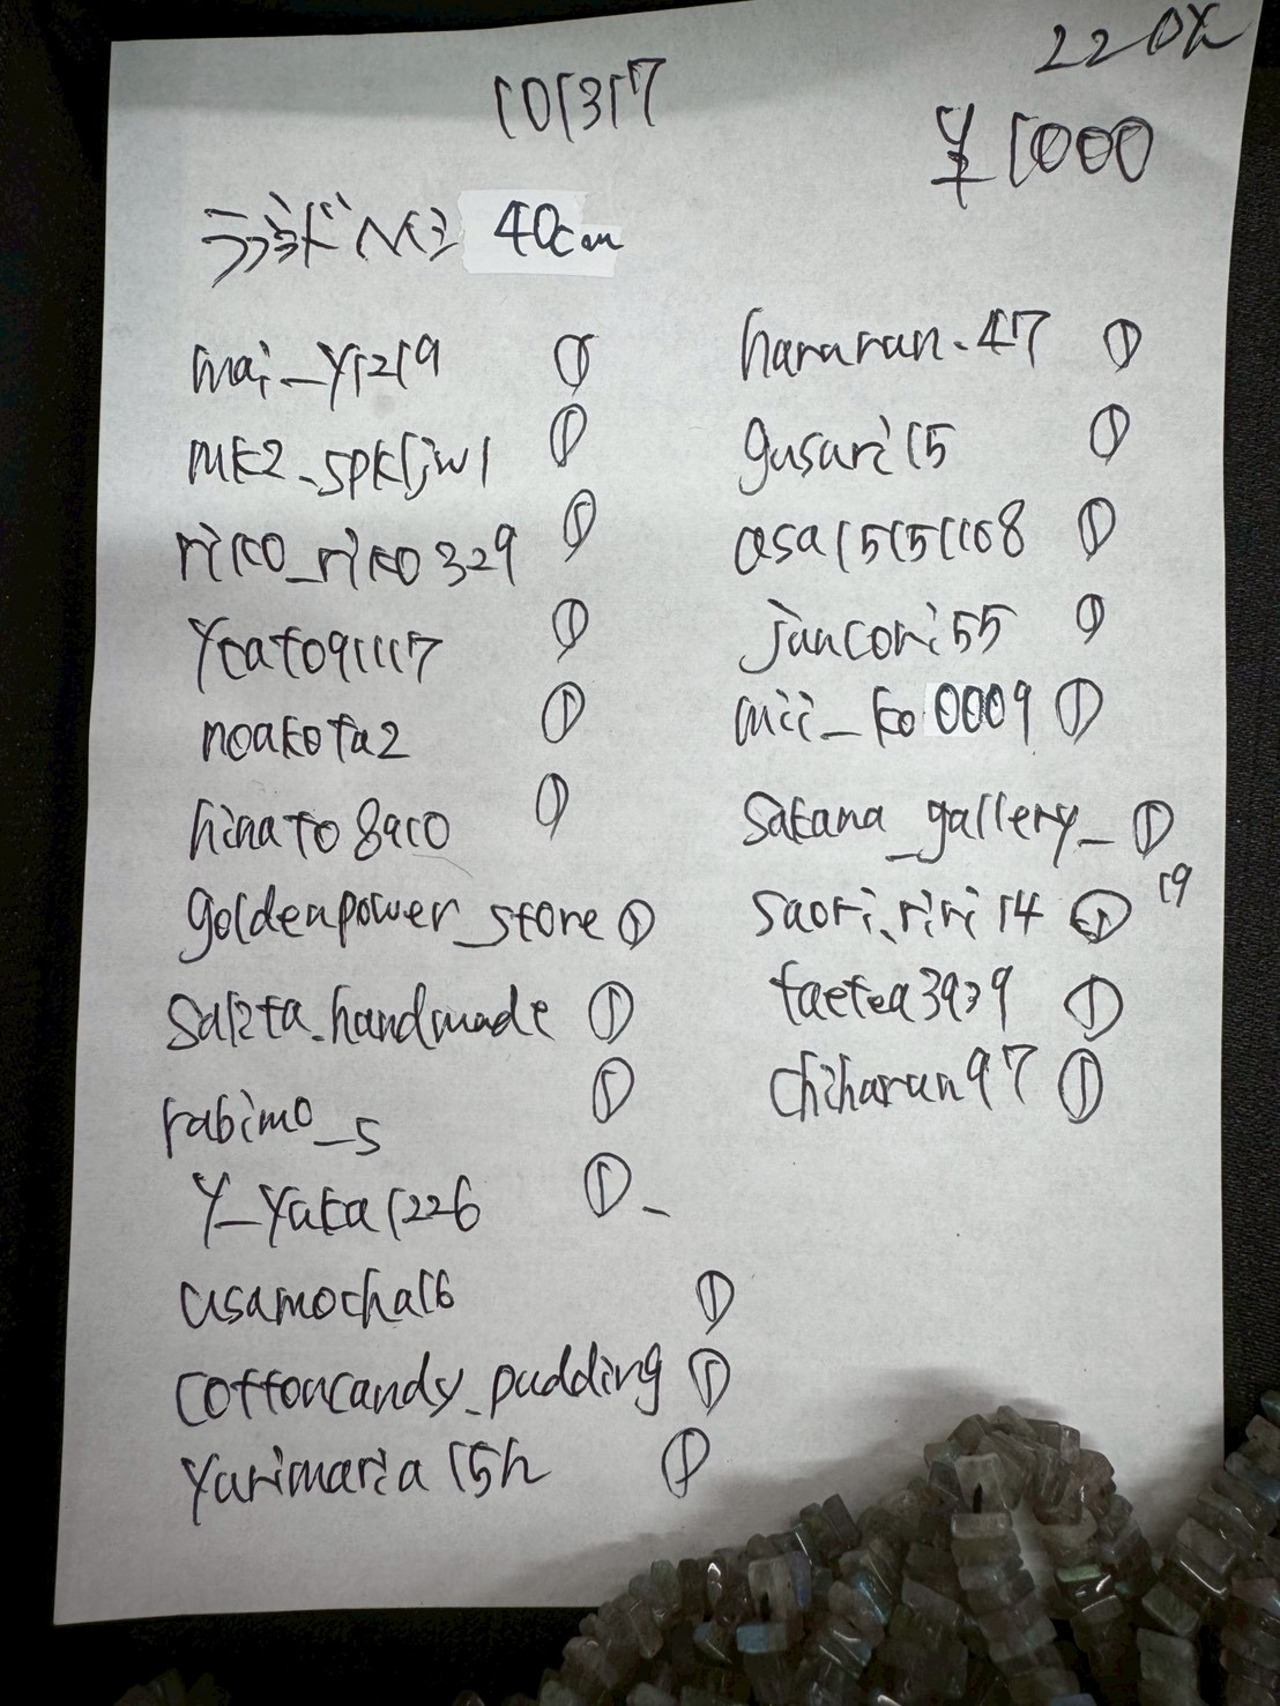 101317
220
¥1000
40cm
mai_y1219 ①
mk2_spkljw1 ①
riko_riko329 ①
ycato91117 ①
noakota2 ①
hinato8910 ①
goldenpower_store ①
sakta.handmade ①
rabimo_s ①
y_yuka1226 ①
usamocha16 ①
cottoncandy_pudding ①
yurimaria15h ①
hanaran.47 ①
gusari15 ①
asa15151108 ①
juncori55 ①
mii_ko0009 ①
sakana_gallery_ ①
saori.riri14 ① 19
taetea3939 ①
chiharun97 ①